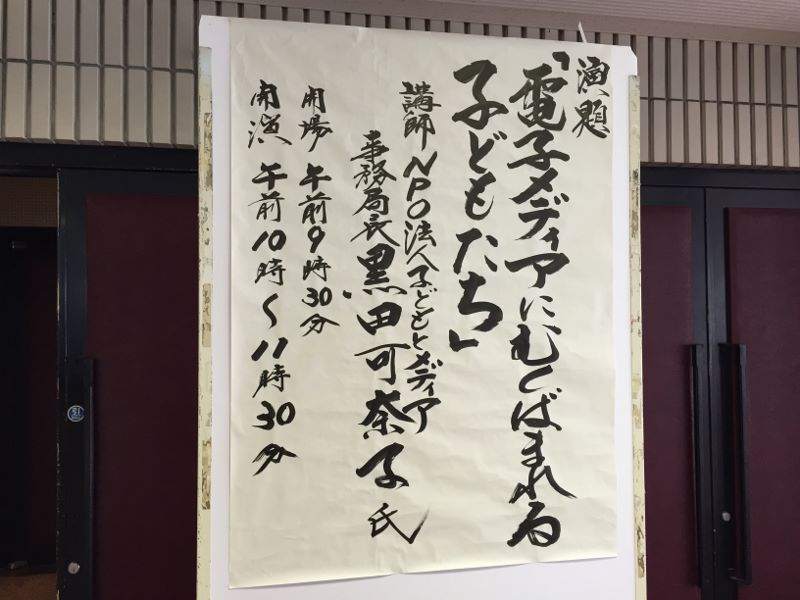 演題
「電子メディアにむしばまれる
子どもたち」
講師 NPO法人子どもとメディア
事務局長 黒田可奈子氏
開場 午前9時30分
開演 午前10時~11時30分